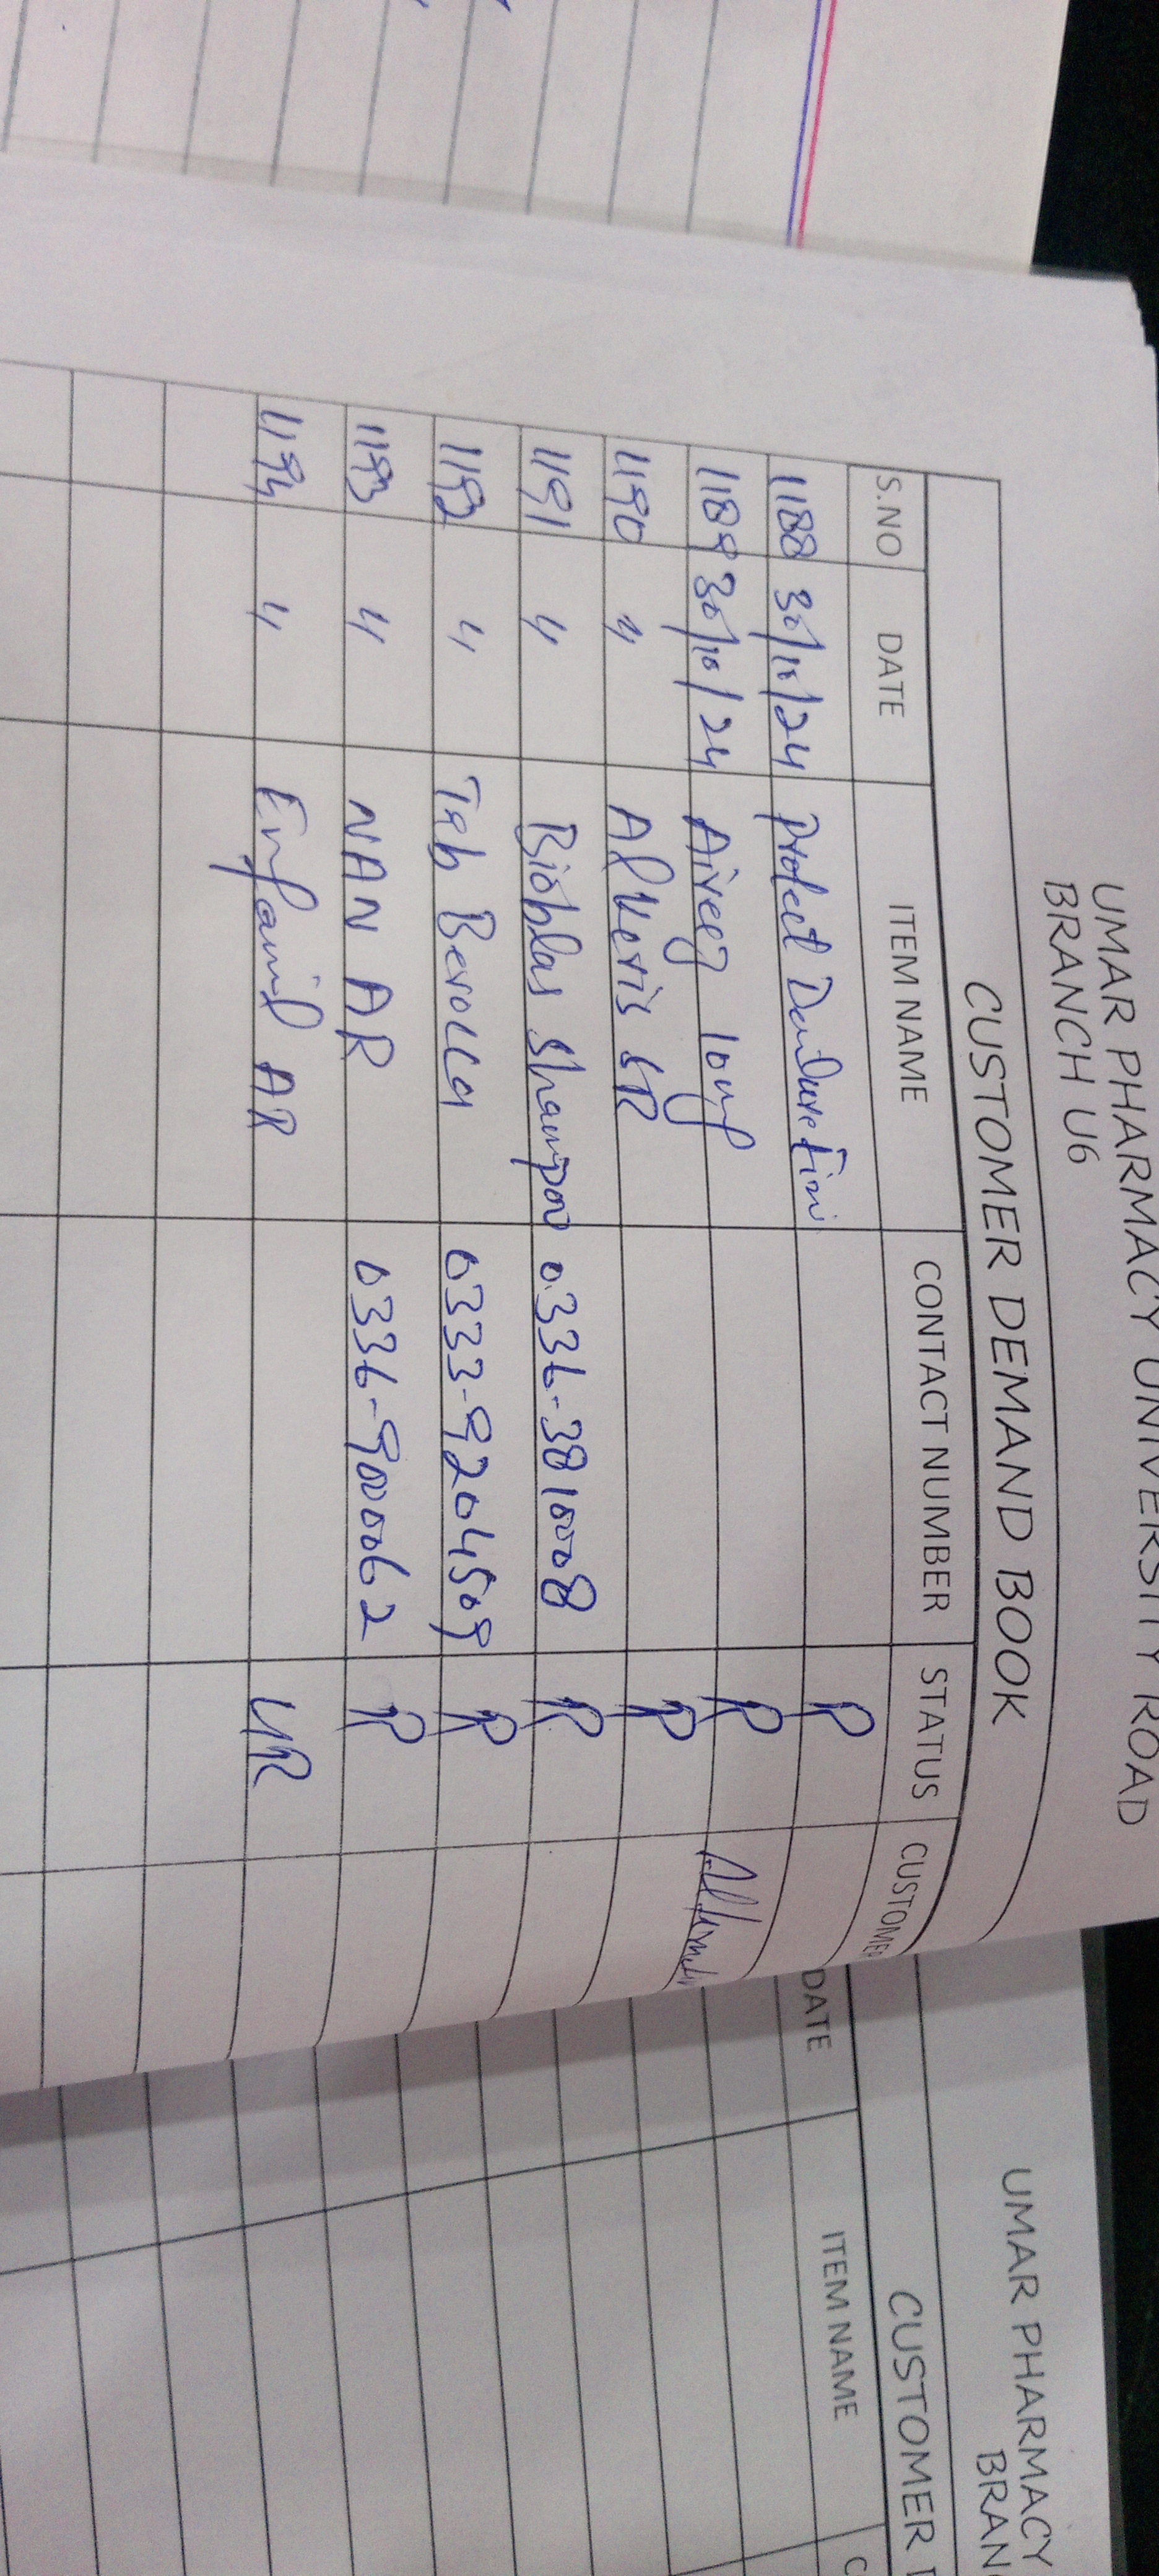 UMAR PHARMACY UNIVERSITY ROAD
BRANCH U6
CUSTOMER DEMAND BOOK
S.NO DATE ITEM NAME CONTACT NUMBER STATUS CUSTOMER
1188 30/10/24 Protect Denture R
1189 30/10/24 10mg R
1190 " R
1191 " Shampoo 0336-3810008 R
1192 " Tab Berocca 0333-9204509 R
1193 " NAN AR 0336-9000062 R
1194 " Enfamil AR UR
DATE ITEM NAME
UMAR PHARMACY
BRAN
CUSTOMER